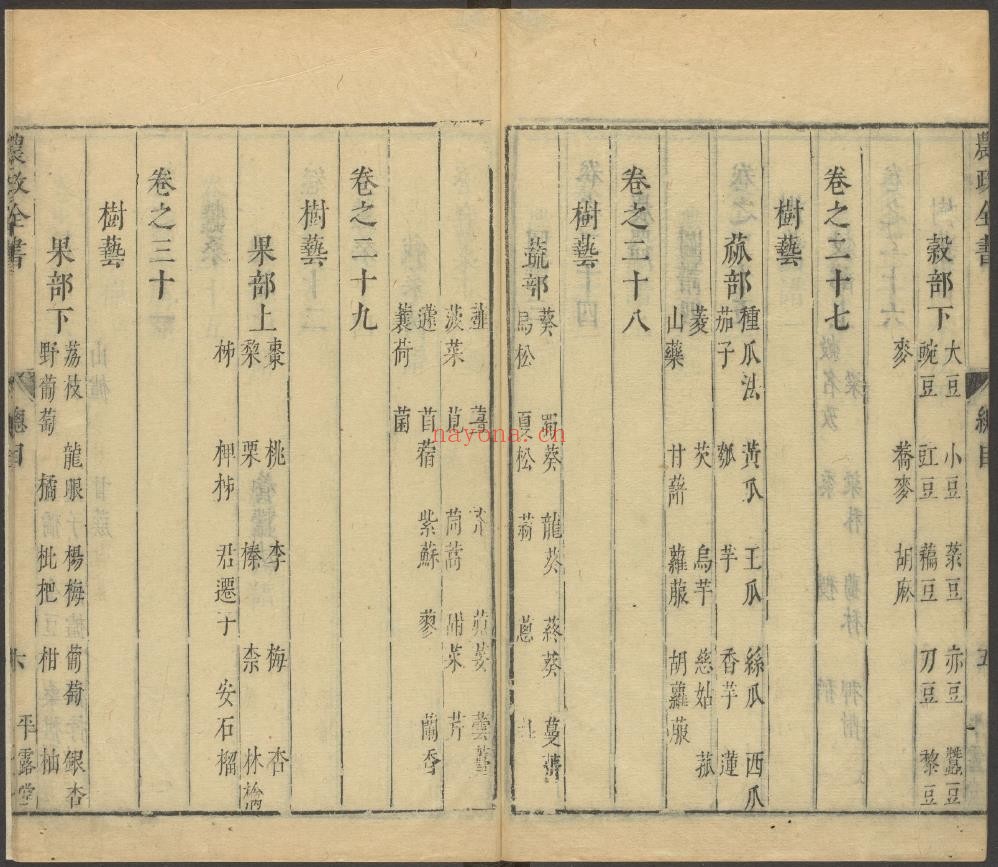 農政全書 總目 五
穀部下
大豆 小豆 菉豆 赤豆 蠶豆
豌豆 豇豆 穭豆 刀豆 黎豆
麥 蕎麥 胡麻
卷之二十七
樹藝
蓏部
種瓜法 黃瓜 王瓜 絲瓜 西瓜
茄子 瓠 芋 香芋 蓮
菱 芡 烏芋 慈姑 菰
山藥 甘藷 蘿菔 胡蘿菔
卷之二十八
樹藝
蔬部
葵 蜀葵 龍葵 蔓菁
烏松 夏松 葱
薑 芥 蕓薹
菠菜 莧 茼蒿 甜菜 芹
苜蓿 紫蘇 蓼 蘭香
蘘荷 菌
卷之二十九
樹藝
果部上
棗 桃 李 梅 杏
棃 栗 榛 柰 林檎
柿 椑柿 君遷子 安石榴
卷之三十
樹藝
果部下
荔枝 龍眼 楊梅 葡萄 銀杏
野葡萄 橘 枇杷 柑 柚
農政全書 總目 六 平露堂
nayona.cn